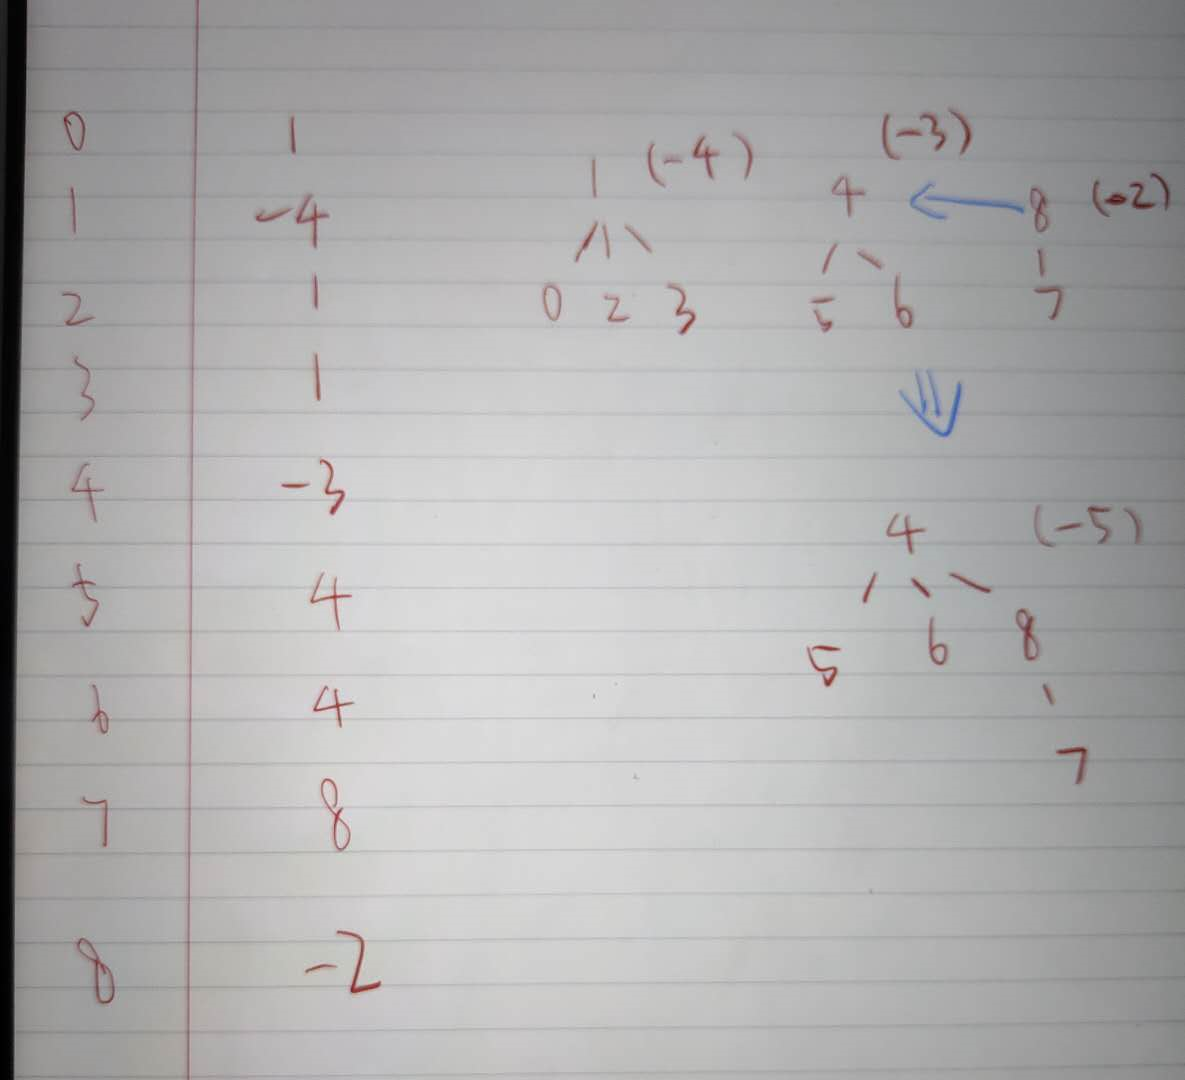 0 1
1 (-4) (-3)
1 -4 4 8 (-2)
2 1 0 2 3 5 6 7
3 1
4 -3 4 (-5)
5 4 5 6 8
6 4 7
7 8
8 -2